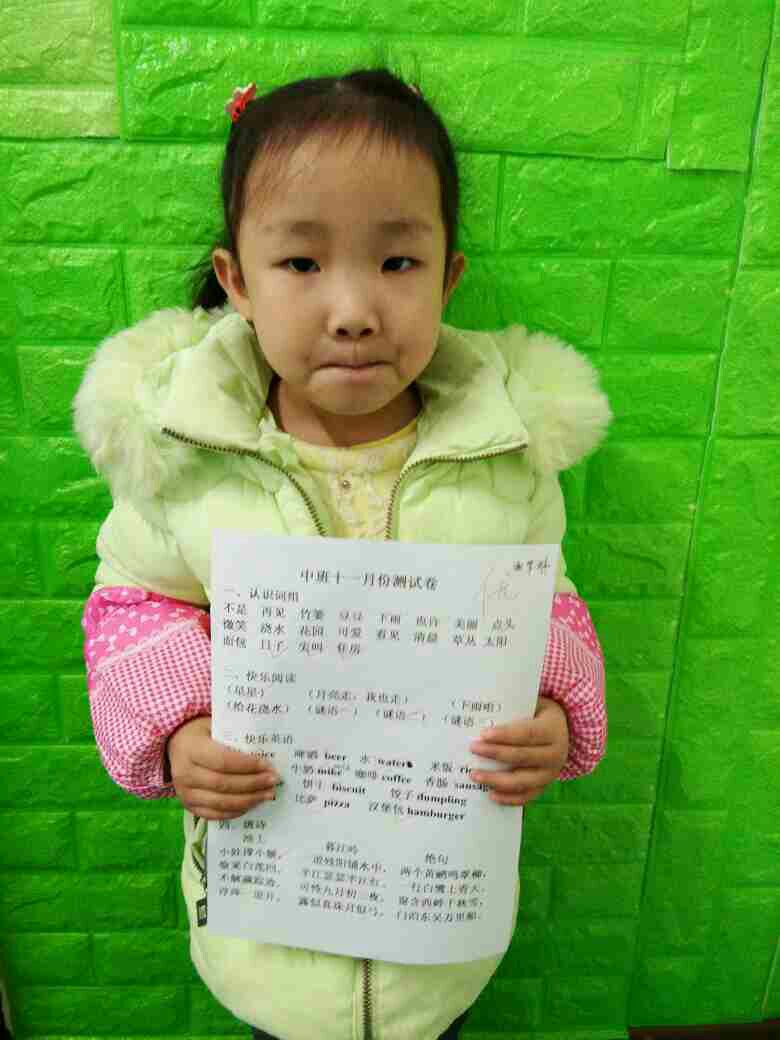 中班十一月份测试卷
优
一、认识词组
不是 再见 竹篓 豆豆 下雨 也许 美丽 点头
微笑 浇水 花园 可爱 看见 清晨 草丛 太阳
面包 日子 尖叫 住房
二、快乐阅读
（星星） （月亮走，我也走） （下雨啦）
（给花浇水） （谜语一） （谜语二） （谜语三）
三、快乐英语
juice 啤酒 beer 水 water 米饭
牛奶 milke 咖啡 coffee 香肠
饼干 biscuit 饺子 dumpling
比萨 pizza 汉堡包 hamburger
四、唐诗
池上 暮江吟 绝句
小娃撑小艇， 一道残阳铺水中， 两个黄鹂鸣翠柳，
偷采白莲回。 半江瑟瑟半江红。 一行白鹭上青天。
不解藏踪迹， 可怜九月初三夜， 窗含西岭千秋雪，
浮萍一道开。 露似真珠月似弓。 门泊东吴万里船。